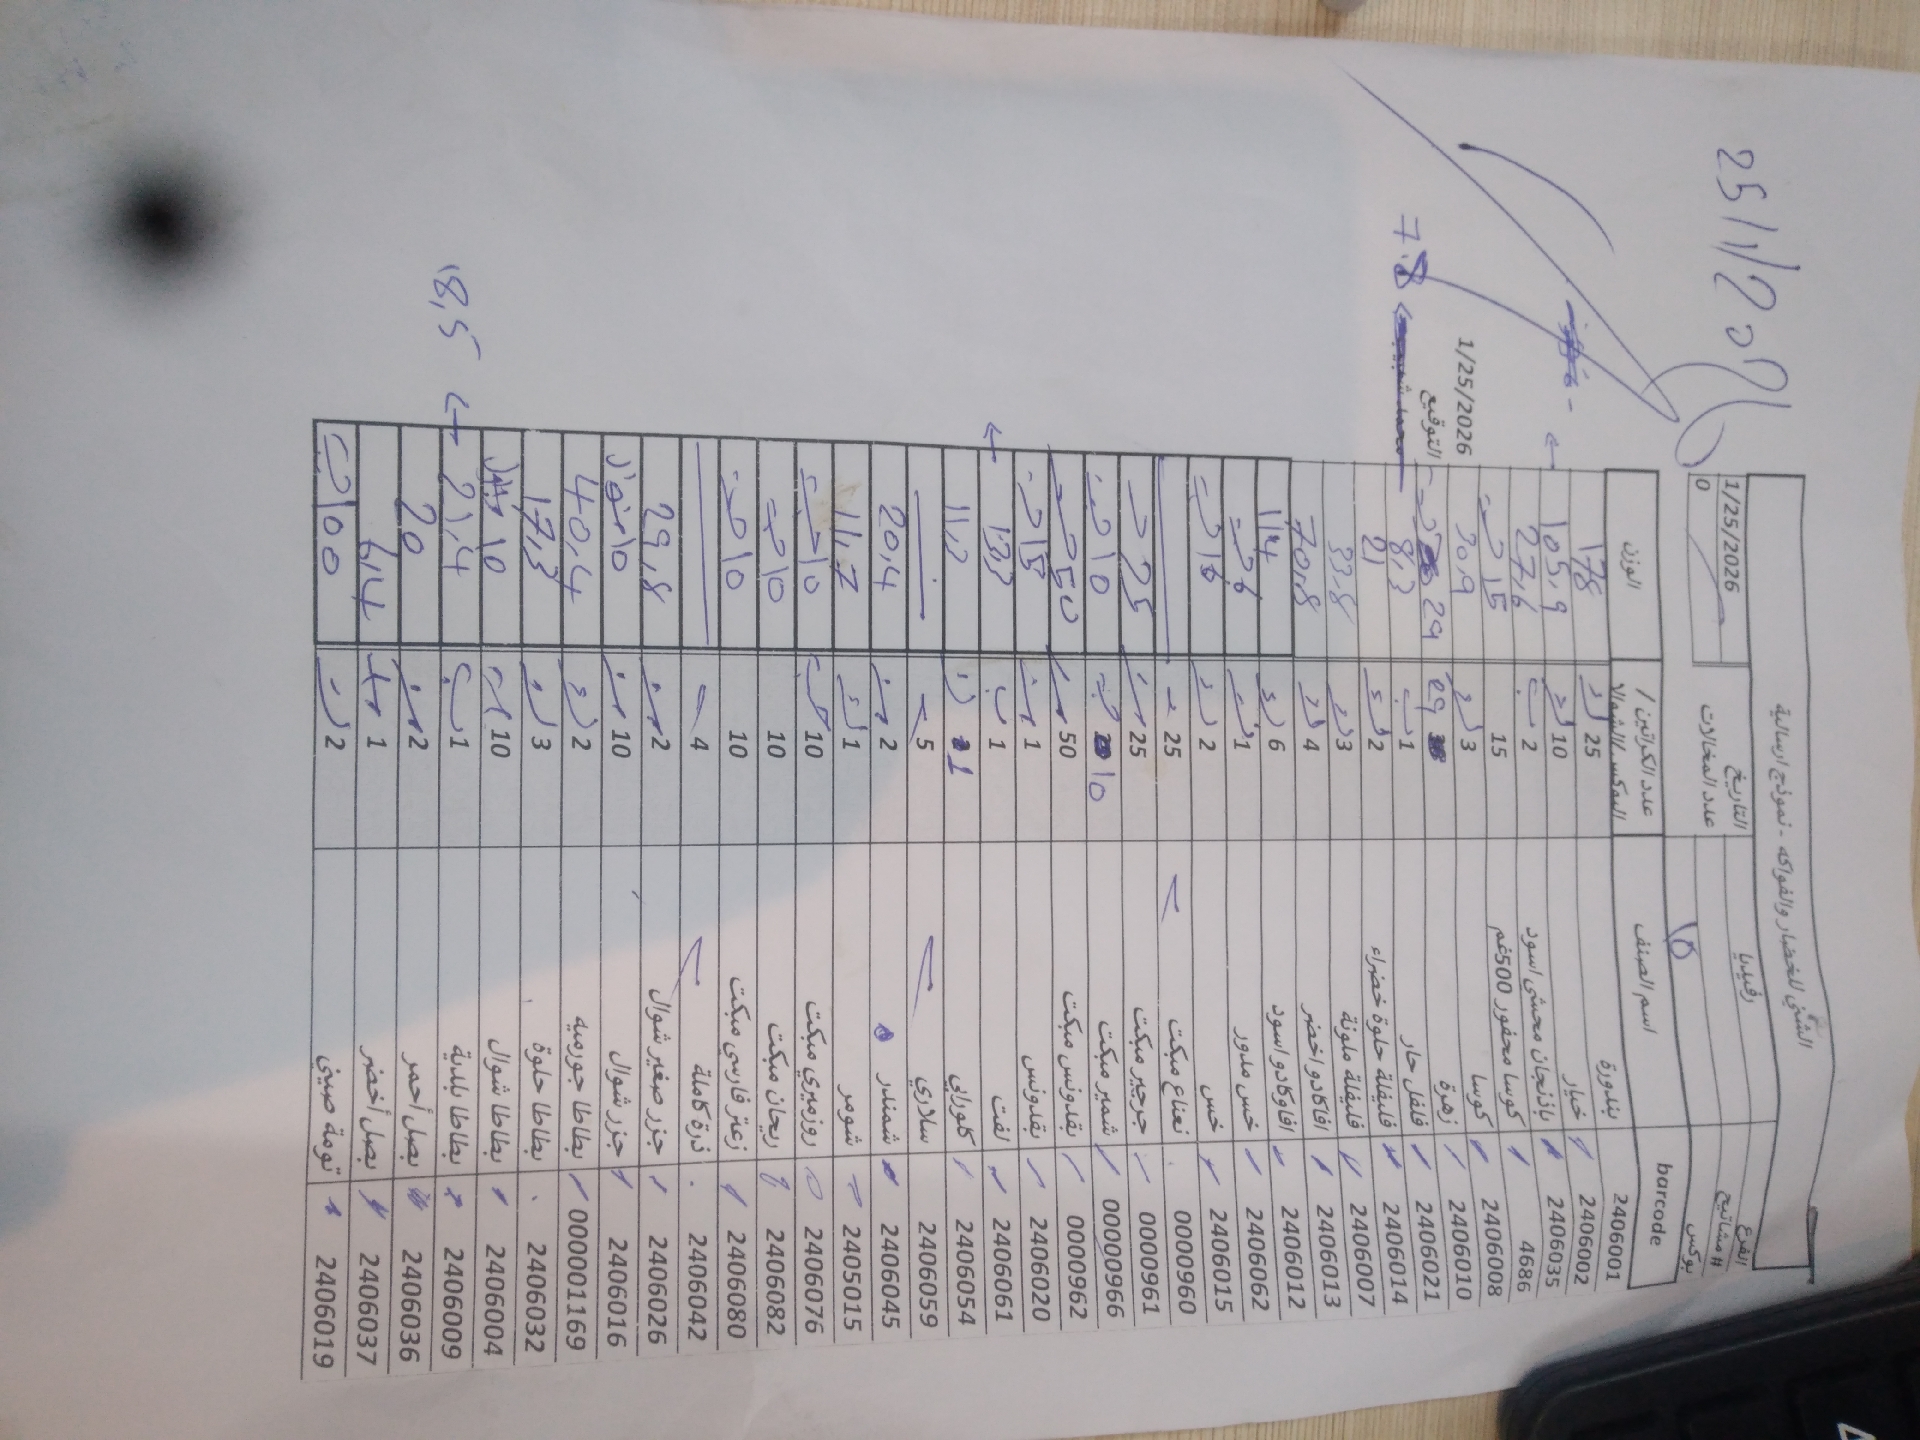 25/1/20
الشني للخضار والفواكه - نموذج ارسالية
الفرع رفيديا التاريخ 1/25/2026
# مشاتيح عدد المخالات 0
بوكس 10
barcode اسم الصنف عدد الكراتين / البوكس/الشوال الوزن
2406001 بندورة 25 178
2406002 خيار 10 105,9
2406035 باذنجان محشي اسود 2 27,6
4686 كوسا محفور 500غم 15 15 حبة
2406008 كوسا 3 30,9
2406010 زهرة 29 29
2406021 فلفل حار 1 8,3
2406014 فليفلة حلوة خضراء 2 21
2406007 فليفلة ملونة 3 33.8
2406013 افاكادو اخضر 4 70,8
2406012 افاوكادو اسود 6 11,4
2406062 خس مدور 1 6
2406015 خس 2 16
0000960 نعناع مبكت 25
0000961 جرجير مبكت 25 25
00000966 شمير مبكت 10 10
0000962 بقدونس مبكت 50 50
2406020 بقدونس 1 15
2406061 لفت 1 13,3
2406054 كلورابي 1 11,2
2406059 سلاري 5
2406045 شمندر 2 20,4
2405015 شومر 1 11,7
2406076 روزميري مبكت 10 10
2406082 ريحان مبكت 10 10
2406080 زعتر فارسي مبكت 10 10
2406042 ذرة كاملة 4
2406026 جزر صغير شوال 2 29,8
2406016 جزر شوال 10 10
000001169 بطاطا جورميه 2 40,4
2406032 بطاطا حلوة 3 17,3
2406004 بطاطا شوال 10 10
2406009 بطاطا بلدية 1 21,4
2406036 بصل أحمر 2 20
2406037 بصل أخضر 1 6,44
2406019 تومة صيني 2 100
التوقيع
1/25/2026
7.8
18,5